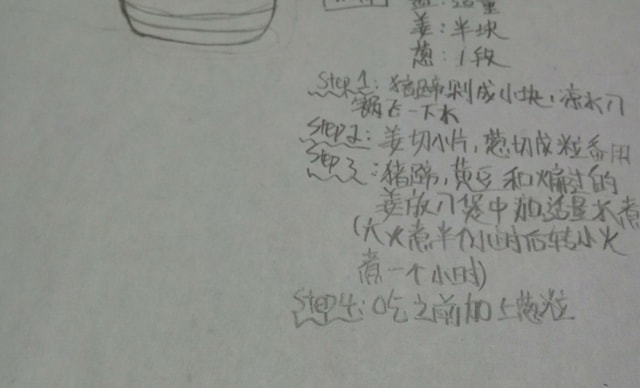 盐:适量
姜:半块
葱:1段
Step 1:猪蹄剁成小块,凉水入
锅飞一下水
Step 2:姜切小片,葱切成粒备用
Step 3:猪蹄,黄豆和煸过的
姜放入煲中加适量水煮
(大火煮半个小时后转小火
煮一个小时)
Step 4:吃之前加上葱粒